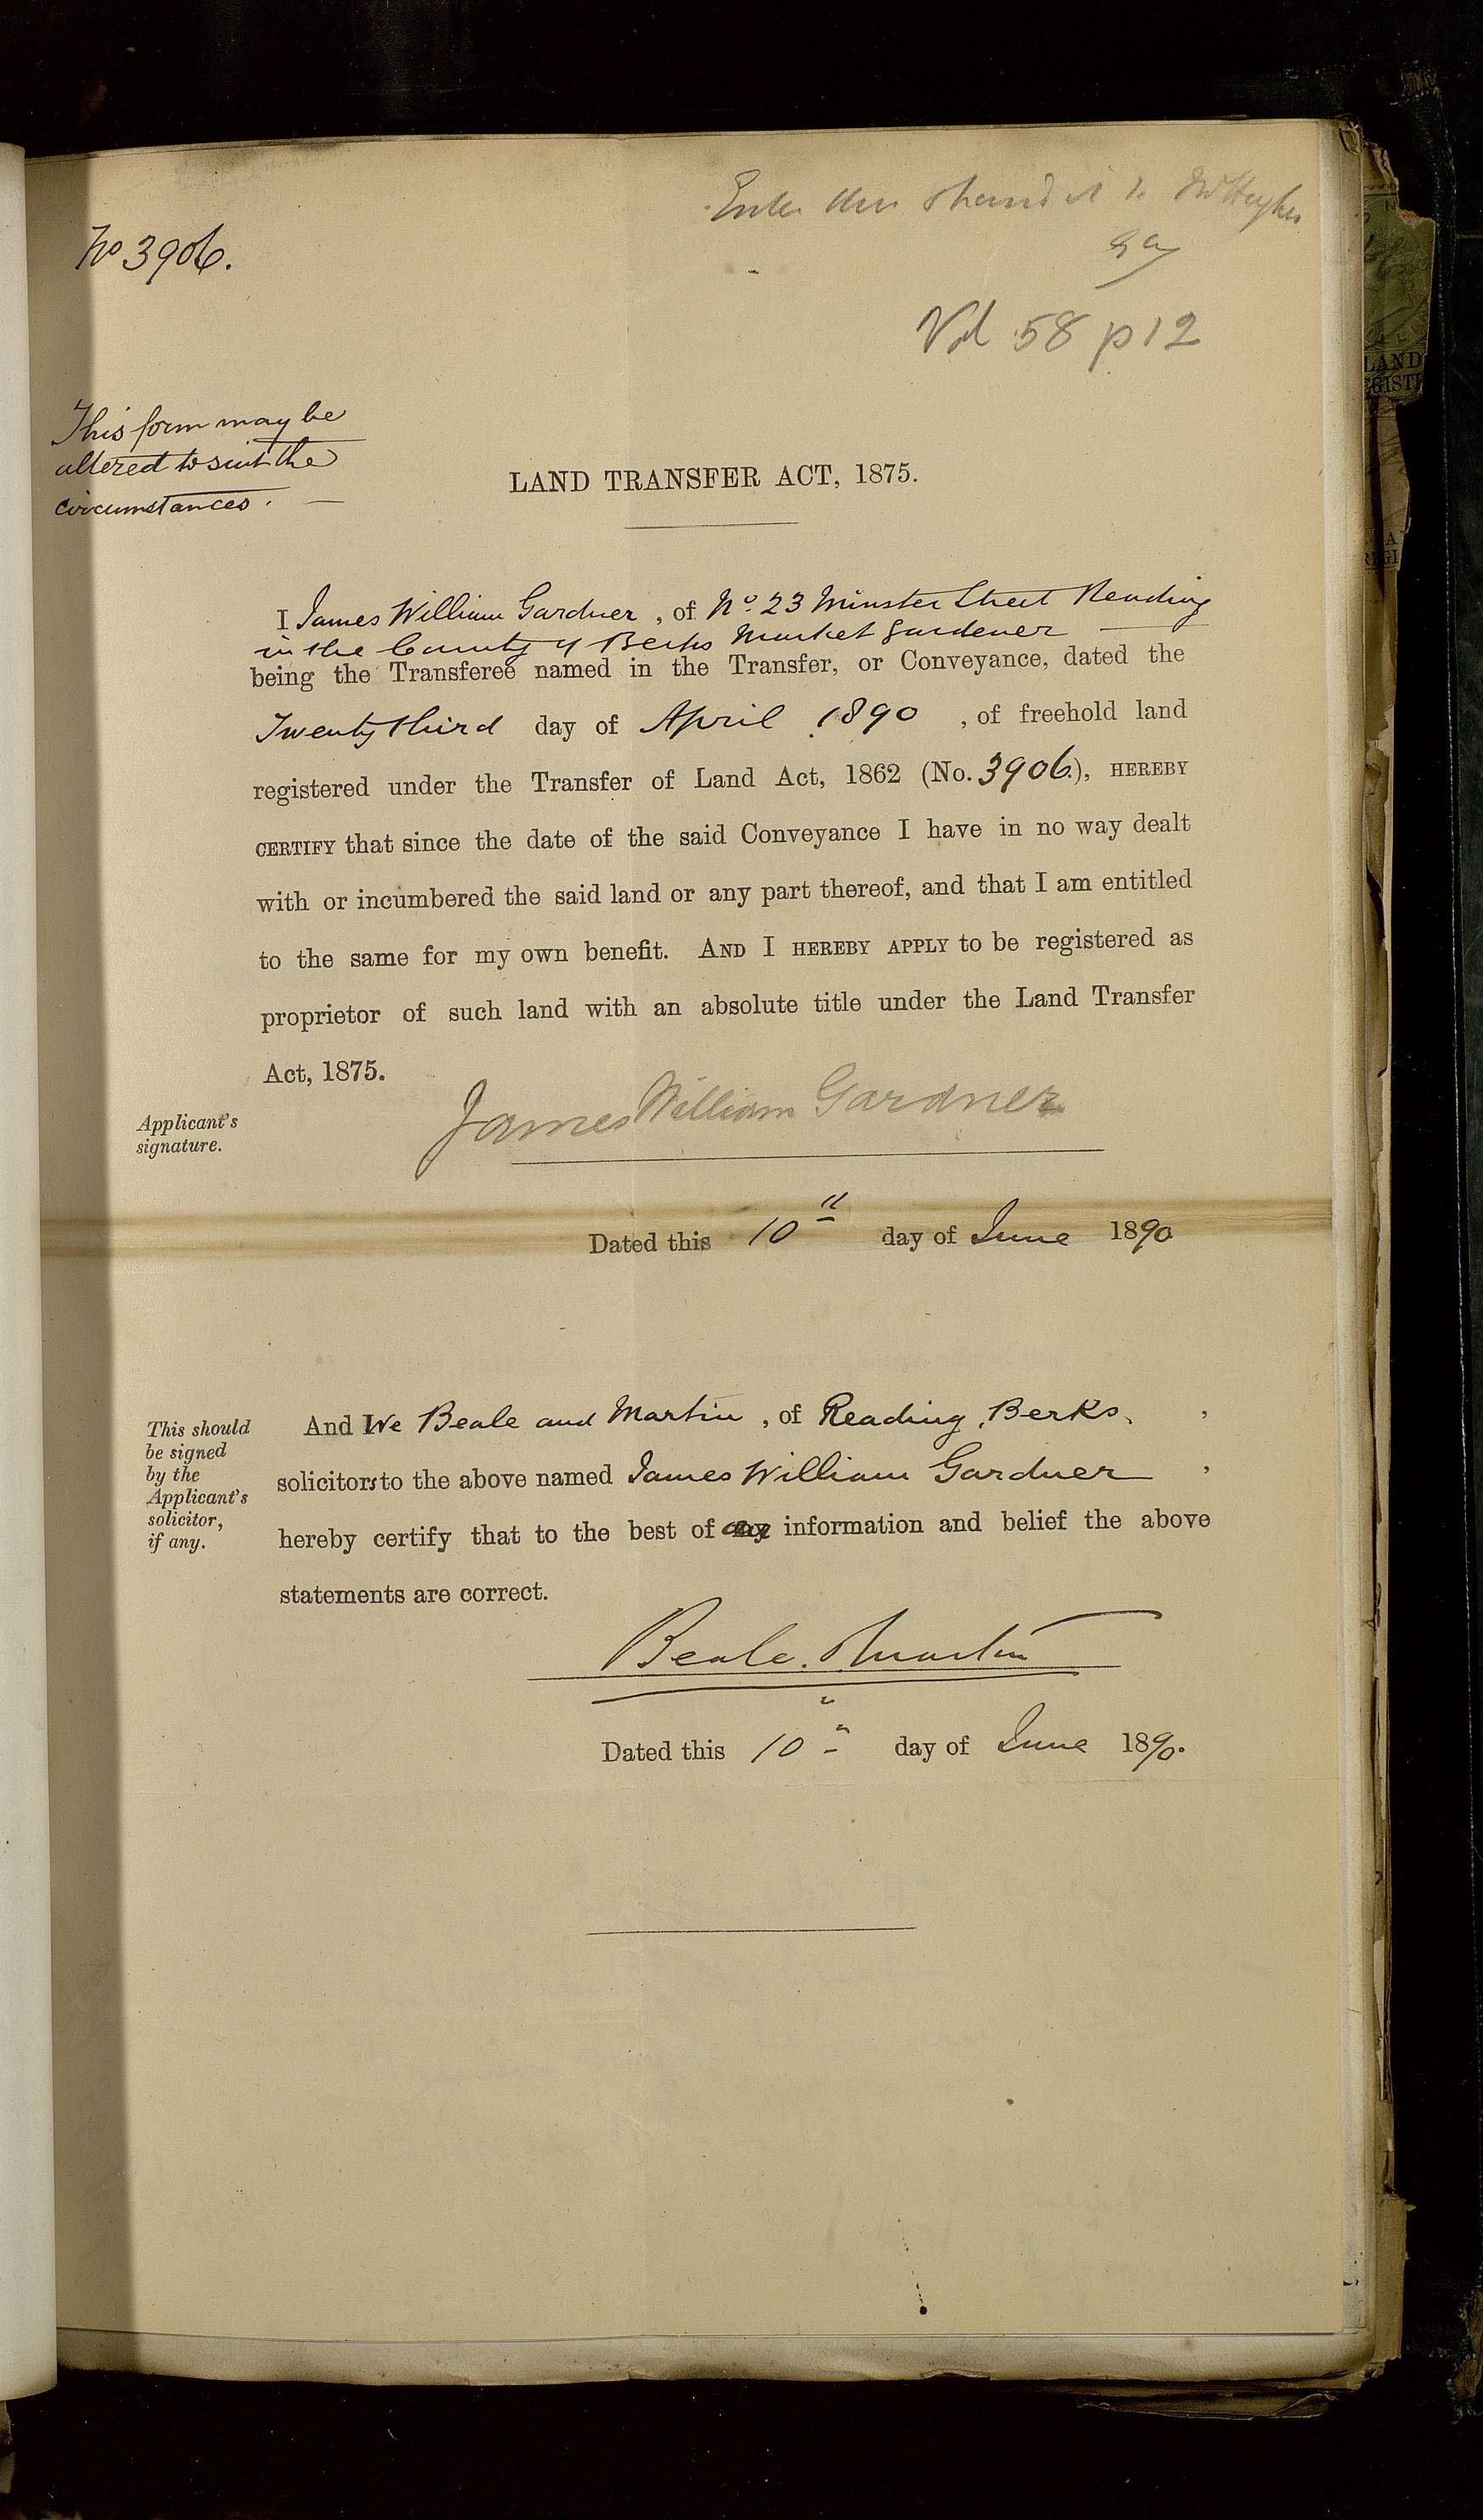 No 3906.
Vol 58 p 12
This form may be
altered to suit the
circumstances.
LAND TRANSFER ACT, 1875.
I James William Gardner, of No. 23 Minster Street Reading
in the County of Berks Market Gardener
being the Transferee named in the Transfer, or Conveyance, dated the
Twenty third day of April 1890, of freehold land
registered under the Transfer of Land Act, 1862 (No. 3906.), HEREBY
CERTIFY that since the date of the said Conveyance I have in no way dealt
with or incumbered the said land or any part thereof, and that I am entitled
to the same for my own benefit. AND I HEREBY APPLY to be registered as
proprietor of such land with an absolute title under the Land Transfer
Act, 1875.
Applicant's
signature.
James William Gardner
Dated this 10th day of June 1890
This should
be signed
by the
Applicant's
solicitor,
if any.
And We Beale and Martin, of Reading, Berks,
solicitors to the above named James William Gardner,
hereby certify that to the best of our information and belief the above
statements are correct.
Beale & Martin
Dated this 10th day of June 1890.
LAND
REGI